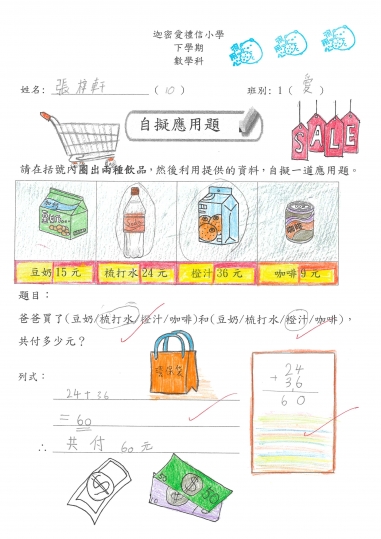 迦密愛禮信小學
下學期
數學科
姓名: 張梓軒 (10) 班別: 1 (愛)
自擬應用題
SALE
請在括號內圈出兩種飲品，然後利用提供的資料，自擬一道應用題。
豆奶 15 元 梳打水 24 元 橙汁 36 元 咖啡 9 元
題目：
爸爸買了(豆奶/梳打水/橙汁/咖啡)和(豆奶/梳打水/橙汁/咖啡)，
共付多少元？
環保袋
列式：
24 + 36
= 60
∴ 共付 60 元
24
+ 36
60
50